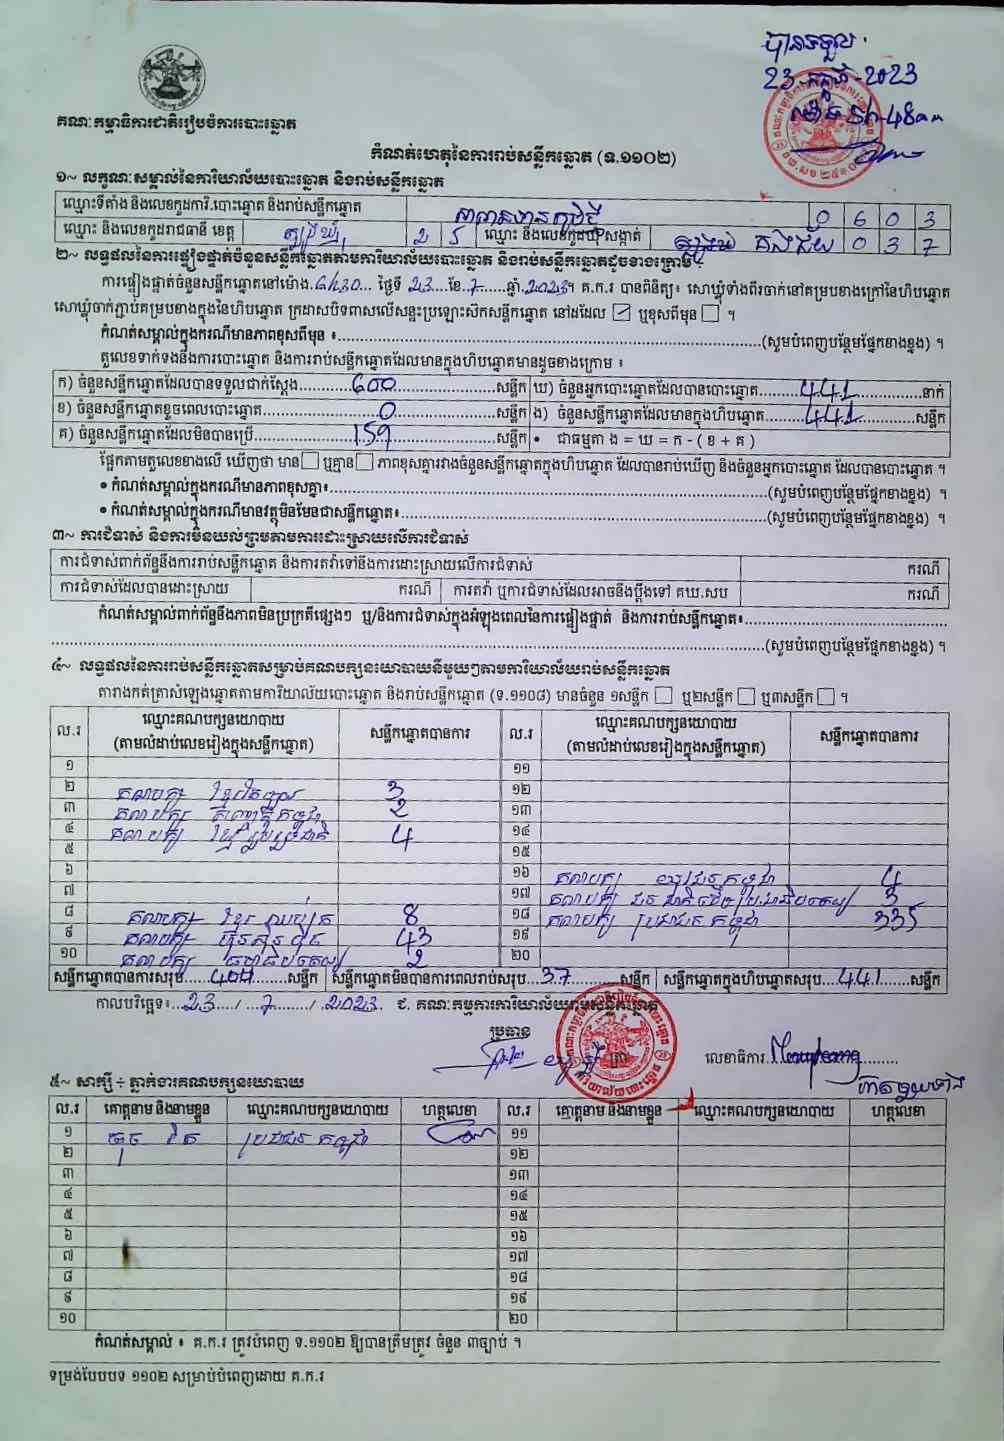 បានទទួល
23-កក្កដា-2023
គណៈកម្មាធិការជាតិរៀបចំការបោះឆ្នោត
កំណត់ហេតុនៃការរាប់សន្លឹកឆ្នោត (ទ.១១០២)
១~ លក្ខណៈសម្គាល់នៃការិយាល័យបោះឆ្នោត និងរាប់សន្លឹកឆ្នោត
ឈ្មោះទីតាំង និងលេខកូដការិ.បោះឆ្នោត និងរាប់សន្លឹកឆ្នោត 0 6 0 3
ឈ្មោះ និងលេខកូដរាជធានី ខេត្ត ត្បូងឃ្មុំ 2 5 ឈ្មោះ និងលេខកូដឃុំ សង្កាត់ 0 3 7
២~ លទ្ធផលនៃការផ្ទៀងផ្ទាត់ចំនួនសន្លឹកឆ្នោតតាមការិយាល័យបោះឆ្នោត និងរាប់សន្លឹកឆ្នោតដូចខាងក្រោម ៖
ការផ្ទៀងផ្ទាត់ចំនួនសន្លឹកឆ្នោតនៅម៉ោង.6h30... ថ្ងៃទី 23...ខែ.7......ឆ្នាំ.2023។ គ.ក.រ បានពិនិត្យ៖ សោឃ្លុំទាំងពីរចាក់នៅគម្របខាងក្រៅនៃហិបឆ្នោត
សោឃ្លុំចាក់ភ្ជាប់គម្របខាងក្នុងនៃហិបឆ្នោត ក្រដាសបិទពាសលើសន្ទះប្រឡោះសឹកសន្លឹកឆ្នោត នៅដដែល ☑ ឬខុសពីមុន ☐ ។
កំណត់សម្គាល់ក្នុងករណីមានភាពខុសពីមុន ៖......(សូមបំពេញបន្ថែមផ្នែកខាងខ្នង) ។
តួលេខទាក់ទងនឹងការបោះឆ្នោត និងការរាប់សន្លឹកឆ្នោតដែលមានក្នុងហិបឆ្នោតមានដូចខាងក្រោម ៖
ក) ចំនួនសន្លឹកឆ្នោតដែលបានទទួលជាក់ស្តែង......600......សន្លឹក ឃ) ចំនួនអ្នកបោះឆ្នោតដែលបានបោះឆ្នោត......441......នាក់
ខ) ចំនួនសន្លឹកឆ្នោតខូចពេលបោះឆ្នោត......0......សន្លឹក ង) ចំនួនសន្លឹកឆ្នោតដែលមានក្នុងហិបឆ្នោត......441......សន្លឹក
គ) ចំនួនសន្លឹកឆ្នោតដែលមិនបានប្រើ......159......សន្លឹក • ជាធម្មតា ង = ឃ = ក - ( ខ + គ )
ផ្អែកតាមតួលេខខាងលើ ឃើញថា មាន ☐ ឬគ្មាន ☐ ភាពខុសគ្នារវាងចំនួនសន្លឹកឆ្នោតក្នុងហិបឆ្នោត ដែលបានរាប់ឃើញ និងចំនួនអ្នកបោះឆ្នោត ដែលបានបោះឆ្នោត ។
• កំណត់សម្គាល់ក្នុងករណីមានភាពខុសគ្នា៖......(សូមបំពេញបន្ថែមផ្នែកខាងខ្នង) ។
• កំណត់សម្គាល់ក្នុងករណីមានវត្ថុមិនមែនជាសន្លឹកឆ្នោត៖......(សូមបំពេញបន្ថែមផ្នែកខាងខ្នង) ។
៣~ ការជំទាស់ និងការមិនយល់ព្រមតាមការដោះស្រាយលើការជំទាស់
ការជំទាស់ពាក់ព័ន្ធនឹងការរាប់សន្លឹកឆ្នោត និងការតវ៉ាទៅនឹងការដោះស្រាយលើការជំទាស់ ករណី
ការជំទាស់ដែលបានដោះស្រាយ ករណី ការតវ៉ា ឬការជំទាស់ដែលអាចនឹងប្តឹងទៅ គឃ.សប ករណី
កំណត់សម្គាល់ពាក់ព័ន្ធនឹងភាពមិនប្រក្រតីផ្សេងៗ ឬ/និងការជំទាស់ក្នុងអំឡុងពេលនៃការផ្ទៀងផ្ទាត់ និងការរាប់សន្លឹកឆ្នោត៖......
......(សូមបំពេញបន្ថែមផ្នែកខាងខ្នង) ។
៤~ លទ្ធផលនៃការរាប់សន្លឹកឆ្នោតសម្រាប់គណបក្សនយោបាយនីមួយៗតាមការិយាល័យរាប់សន្លឹកឆ្នោត
តារាងកត់ត្រាសំឡេងឆ្នោតតាមការិយាល័យបោះឆ្នោត និងរាប់សន្លឹកឆ្នោត (ទ.១១០៨) មានចំនួន ១សន្លឹក ☐ ឬ២សន្លឹក ☐ ឬ៣សន្លឹក ☐ ។
ល.រ ឈ្មោះគណបក្សនយោបាយ (តាមលំដាប់លេខរៀងក្នុងសន្លឹកឆ្នោត) សន្លឹកឆ្នោតបានការ ល.រ ឈ្មោះគណបក្សនយោបាយ (តាមលំដាប់លេខរៀងក្នុងសន្លឹកឆ្នោត) សន្លឹកឆ្នោតបានការ
១ ១១
២ គណបក្ស 3 ១២
៣ គណបក្ស 2 ១៣
៤ គណបក្ស 4 ១៤
៥ ១៥
៦ ១៦ គណបក្ស យុវជនកម្ពុជា 4
៧ ១៧ គណបក្ស 3
៨ គណបក្ស 8 ១៨ គណបក្ស ប្រជាជនកម្ពុជា 335
៩ គណបក្ស ហ៊្វុនស៊ិនប៉ិច 43 ១៩
១០ គណបក្ស 2 ២០
សន្លឹកឆ្នោតបានការសរុប..404......សន្លឹក សន្លឹកឆ្នោតមិនបានការពេលរាប់សរុប..37......សន្លឹក សន្លឹកឆ្នោតក្នុងហិបឆ្នោតសរុប..441......សន្លឹក
កាលបរិច្ឆេទ៖..23..../..7...../.2023. ជ. គណៈកម្មការការិយាល័យរាប់សន្លឹកឆ្នោត
ប្រធាន
លេខាធិការ
៥~ សាក្សី ÷ ភ្នាក់ងារគណបក្សនយោបាយ
ល.រ គោត្តនាម និងនាមខ្លួន ឈ្មោះគណបក្សនយោបាយ ហត្ថលេខា ល.រ គោត្តនាម និងនាមខ្លួន ឈ្មោះគណបក្សនយោបាយ ហត្ថលេខា
១ ប្រជាជនកម្ពុជា ១១
២ ១២
៣ ១៣
៤ ១៤
៥ ១៥
៦ ១៦
៧ ១៧
៨ ១៨
៩ ១៩
១០ ២០
កំណត់សម្គាល់ ៖ គ.ក.រ ត្រូវបំពេញ ទ.១១០២ ឱ្យបានត្រឹមត្រូវ ចំនួន ៣ច្បាប់ ។
ទម្រង់បែបបទ ១១០២ សម្រាប់បំពេញដោយ គ.ក.រ